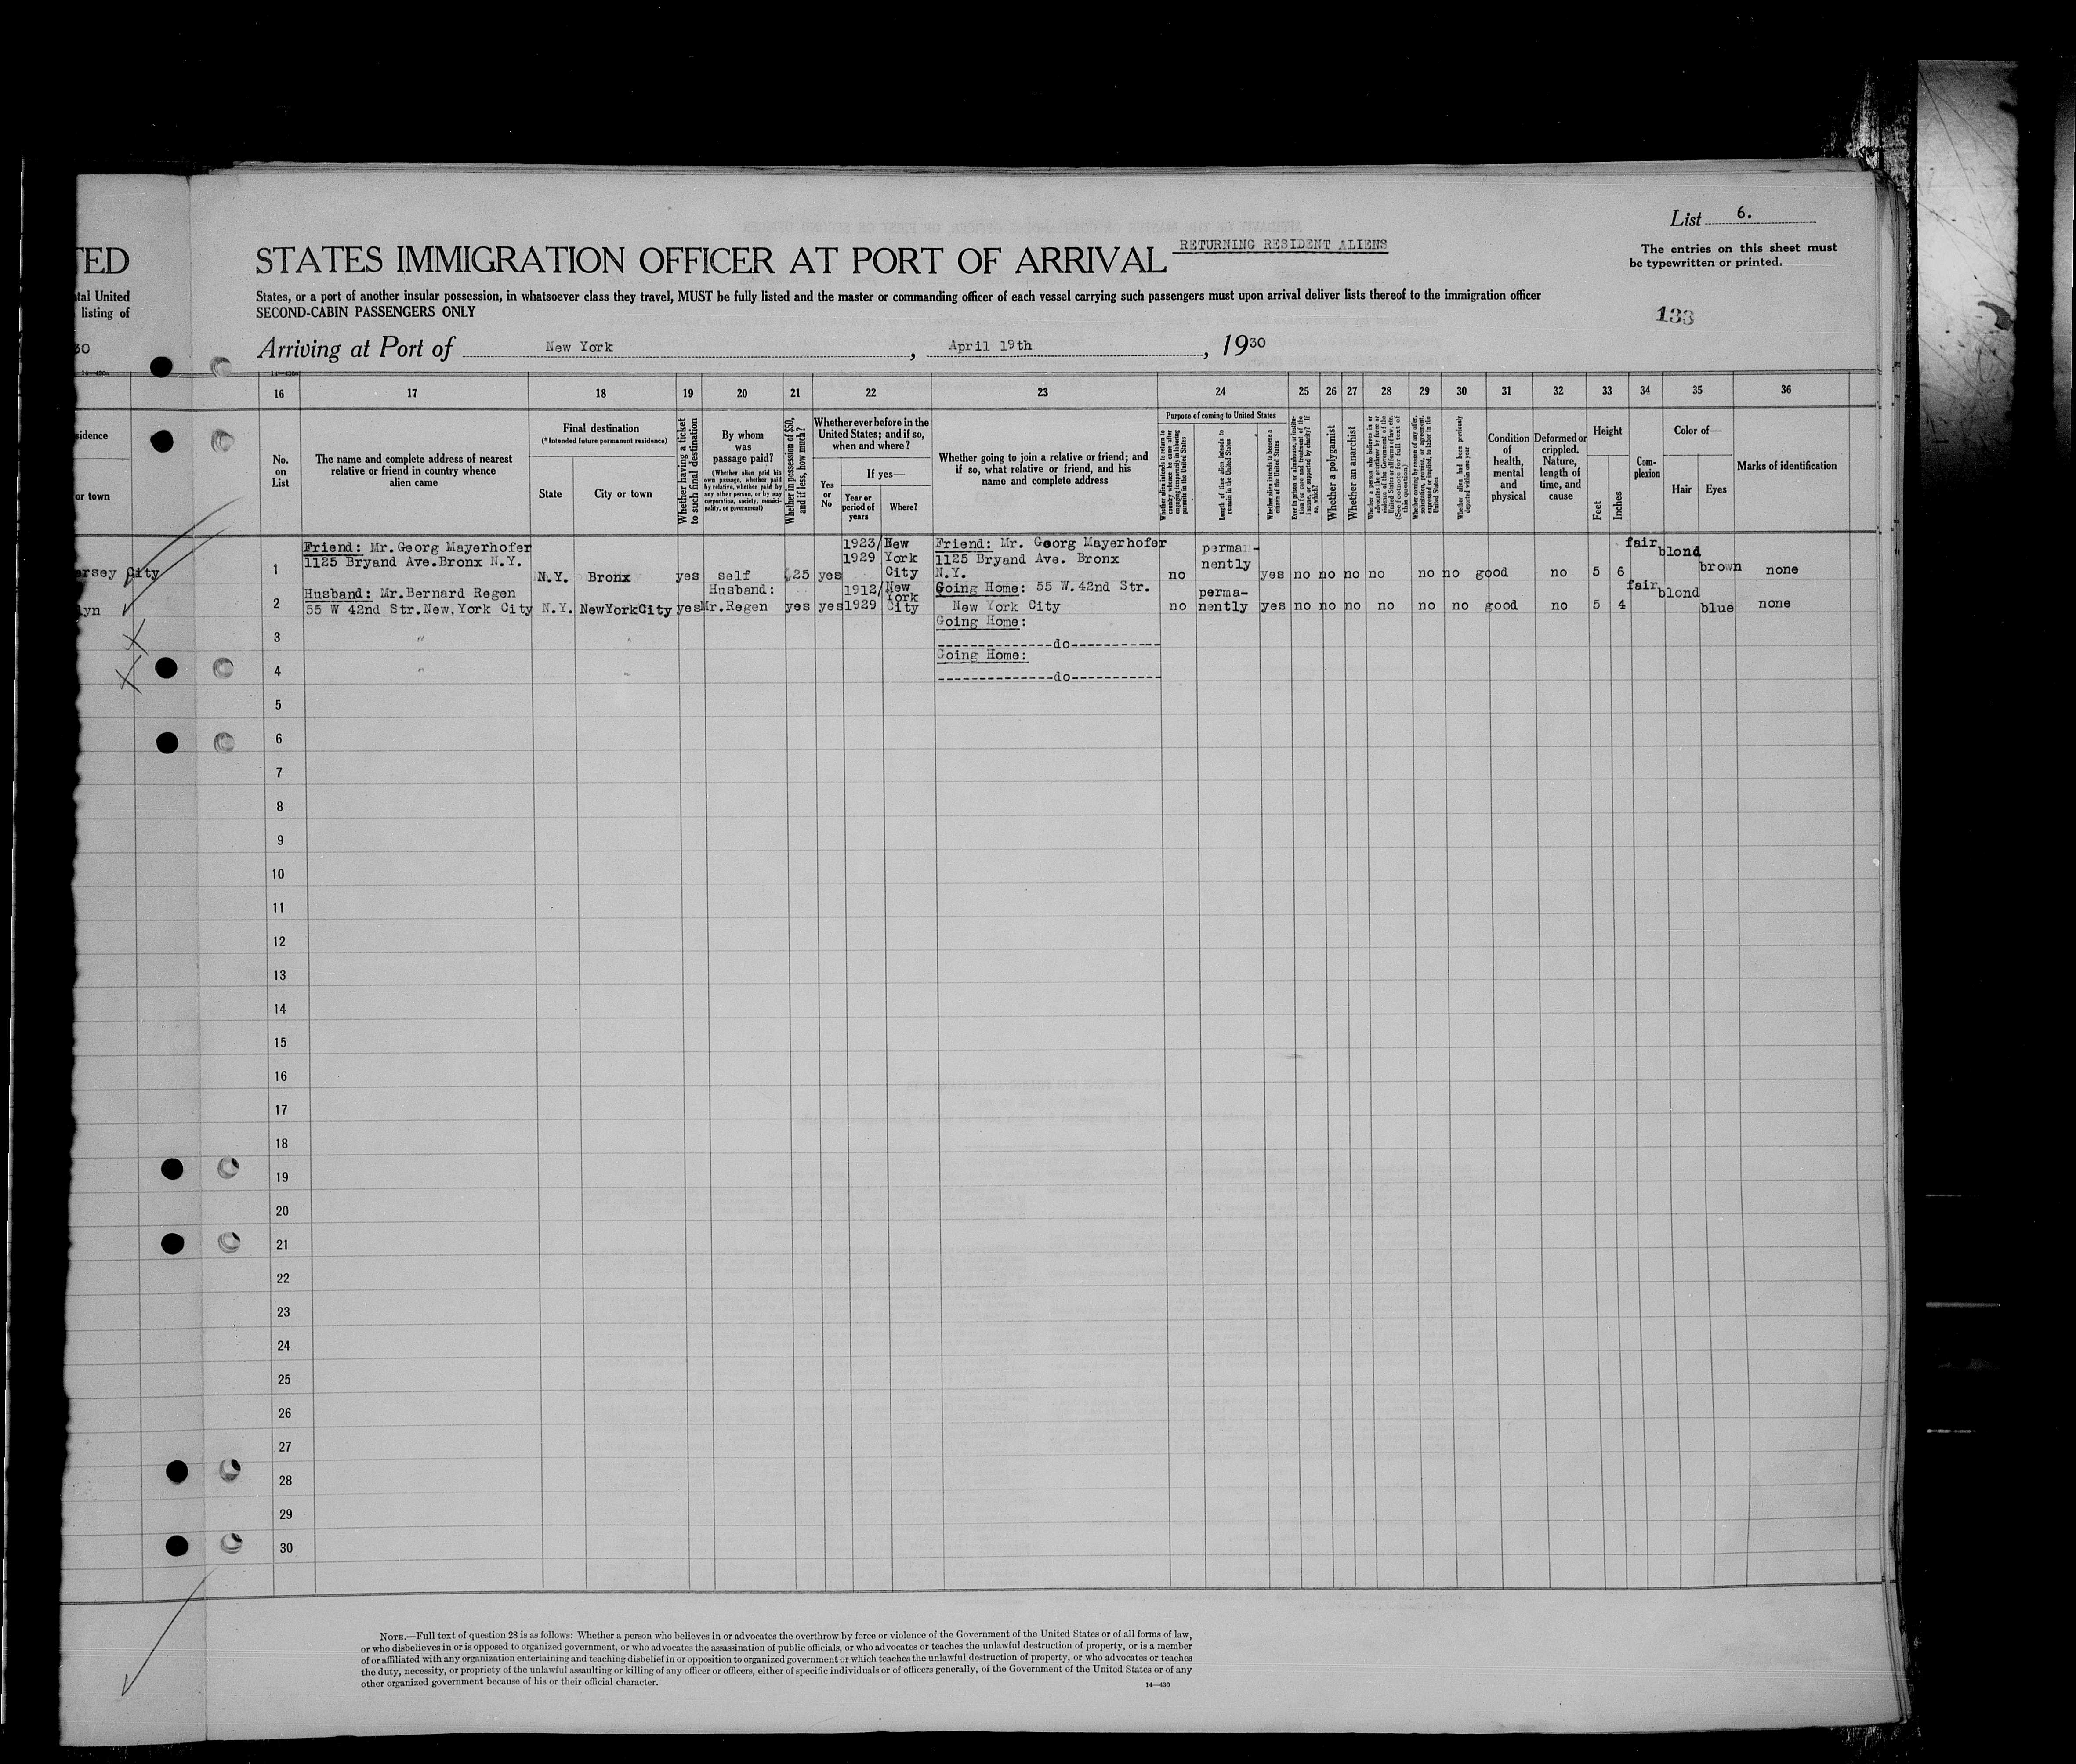 List 6.
The entries on this sheet must
be typewritten or printed.
133
TED
STATES IMMIGRATION OFFICER AT PORT OF ARRIVAL RETURNING RESIDENT ALIENS
tal United
listing of
States, or a port of another insular possession, in whatsoever class they travel, MUST be fully listed and the master or commanding officer of each vessel carrying such passengers must upon arrival deliver lists thereof to the immigration officer
SECOND-CABIN PASSENGERS ONLY
30
Arriving at Port of New York, April 19th, 1930
16 17 18 19 20 21 22 23 24 25 26 27 28 29 30 31 32 33 34 35 36
idence
or town
No.
on
List
The name and complete address of nearest
relative or friend in country whence
alien came
Final destination
(*Intended future permanent residence)
State
City or town
Whether having a ticket
to such final destination
By whom
was
passage paid?
(Whether alien paid his
own passage, whether paid
by relative, whether paid by
any other person, or by any
corporation, society, munici-
pality, or government)
Whether in possession of $50,
and if less, how much?
Whether ever before in the
United States; and if so,
when and where?
Yes
or
No
If yes—
Year or
period of
years
Where?
Whether going to join a relative or friend; and
if so, what relative or friend, and his
name and complete address
Purpose of coming to United States
Whether alien intends to return to
country whence he came after
engaging temporarily in laboring
pursuits in the United States
Length of time alien intends to
remain in the United States
Whether alien intends to become a
citizen of the United States
Ever in prison or almshouse, or institu-
tion for care and treatment of the
insane, or supported by charity? If
so, which?
Whether a polygamist
Whether an anarchist
Whether a person who believes in or
advocates the overthrow by force or
violence of the Government of the
United States or all forms of law, etc.
(See footnote for full text of
this question)
Whether coming by reason of any offer,
solicitation, promise, or agreement,
expressed or implied, to labor in the
United States
Whether alien had been previously
deported within one year
Condition
of
health,
mental
and
physical
Deformed or
crippled.
Nature,
length of
time, and
cause
Height
Feet
Inches
Com-
plexion
Color of—
Hair
Eyes
Marks of identification
ersey City
1 Friend: Mr. Georg Mayerhofer
1125 Bryand Ave. Bronx N.Y.
N.Y. Bronx yes self $25 yes 1923/
1929 New
York
City
Friend: Mr. Georg Mayerhofer
1125 Bryand Ave. Bronx
N.Y.
no perma-
nently yes no no no no no no good no 5 6 fair blond brown none
lyn
2 Husband: Mr. Bernard Regen
55 W 42nd Str. New, York City
N.Y. NewYorkCity yes Husband:
Mr. Regen yes yes 1912/
1929 New
York
City
Going Home: 55 W. 42nd Str.
New York City
no perma-
nently yes no no no no no no good no 5 4 fair blond blue none
3 " " Going Home:
--------------do-----------
4 " " Going Home:
--------------do-----------
5
6
7
8
9
10
11
12
13
14
15
16
17
18
19
20
21
22
23
24
25
26
27
28
29
30
NOTE.—Full text of question 28 is as follows: Whether a person who believes in or advocates the overthrow by force or violence of the Government of the United States or of all forms of law,
or who disbelieves in or is opposed to organized government, or who advocates the assassination of public officials, or who advocates or teaches the unlawful destruction of property, or is a member
of or affiliated with any organization entertaining and teaching disbelief in or opposition to organized government or which teaches the unlawful destruction of property, or who advocates or teaches
the duty, necessity, or propriety of the unlawful assaulting or killing of any officer or officers, either of specific individuals or of officers generally, of the Government of the United States or of any
other organized government because of his or their official character.
14—430